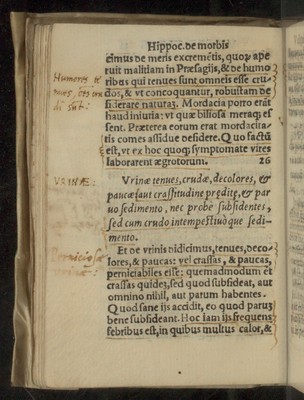 Hippoc. de morbis
cimus de meris excremētis, quorū ape
ruit malitiam in Præsagijs, & de humo
ribus qui tenues sunt omneis esse cru-
dos, & vt concoquantur, robustam de
siderare naturaȝ. Mordacia porro erāt
haud iniuria: vt quæ biliosa meraq; es
sent. Præterea eorum erat mordacita-
tis comes assidue desidere. Quo factū
est, vt ex hoc quoq; symptomate vires
laborarent ægrotorum. 26
Humores te
nues, 
di sūt:
VRINAE:
Vrinæ tenues, crudæ, decolores, &
paucæ, aut crassitudine prędite, & par
uo sedimento, nec probe subsidentes,
sed cum crudo intempestiuoque sedi-
mento.
Et de vrinis didicimus, tenues, deco-
lores, & paucas: vel crassas, & paucas,
perniciabiles esse: quemadmodum et
crassas quideȝ, sed quod subsideat, aut
omnino nihil, aut parum habentes.
Quod sane ijs accidit, eo quod paruȝ
bene subsideant. Hoc iam ijs frequens
febribus est, in quibus multus calor, &